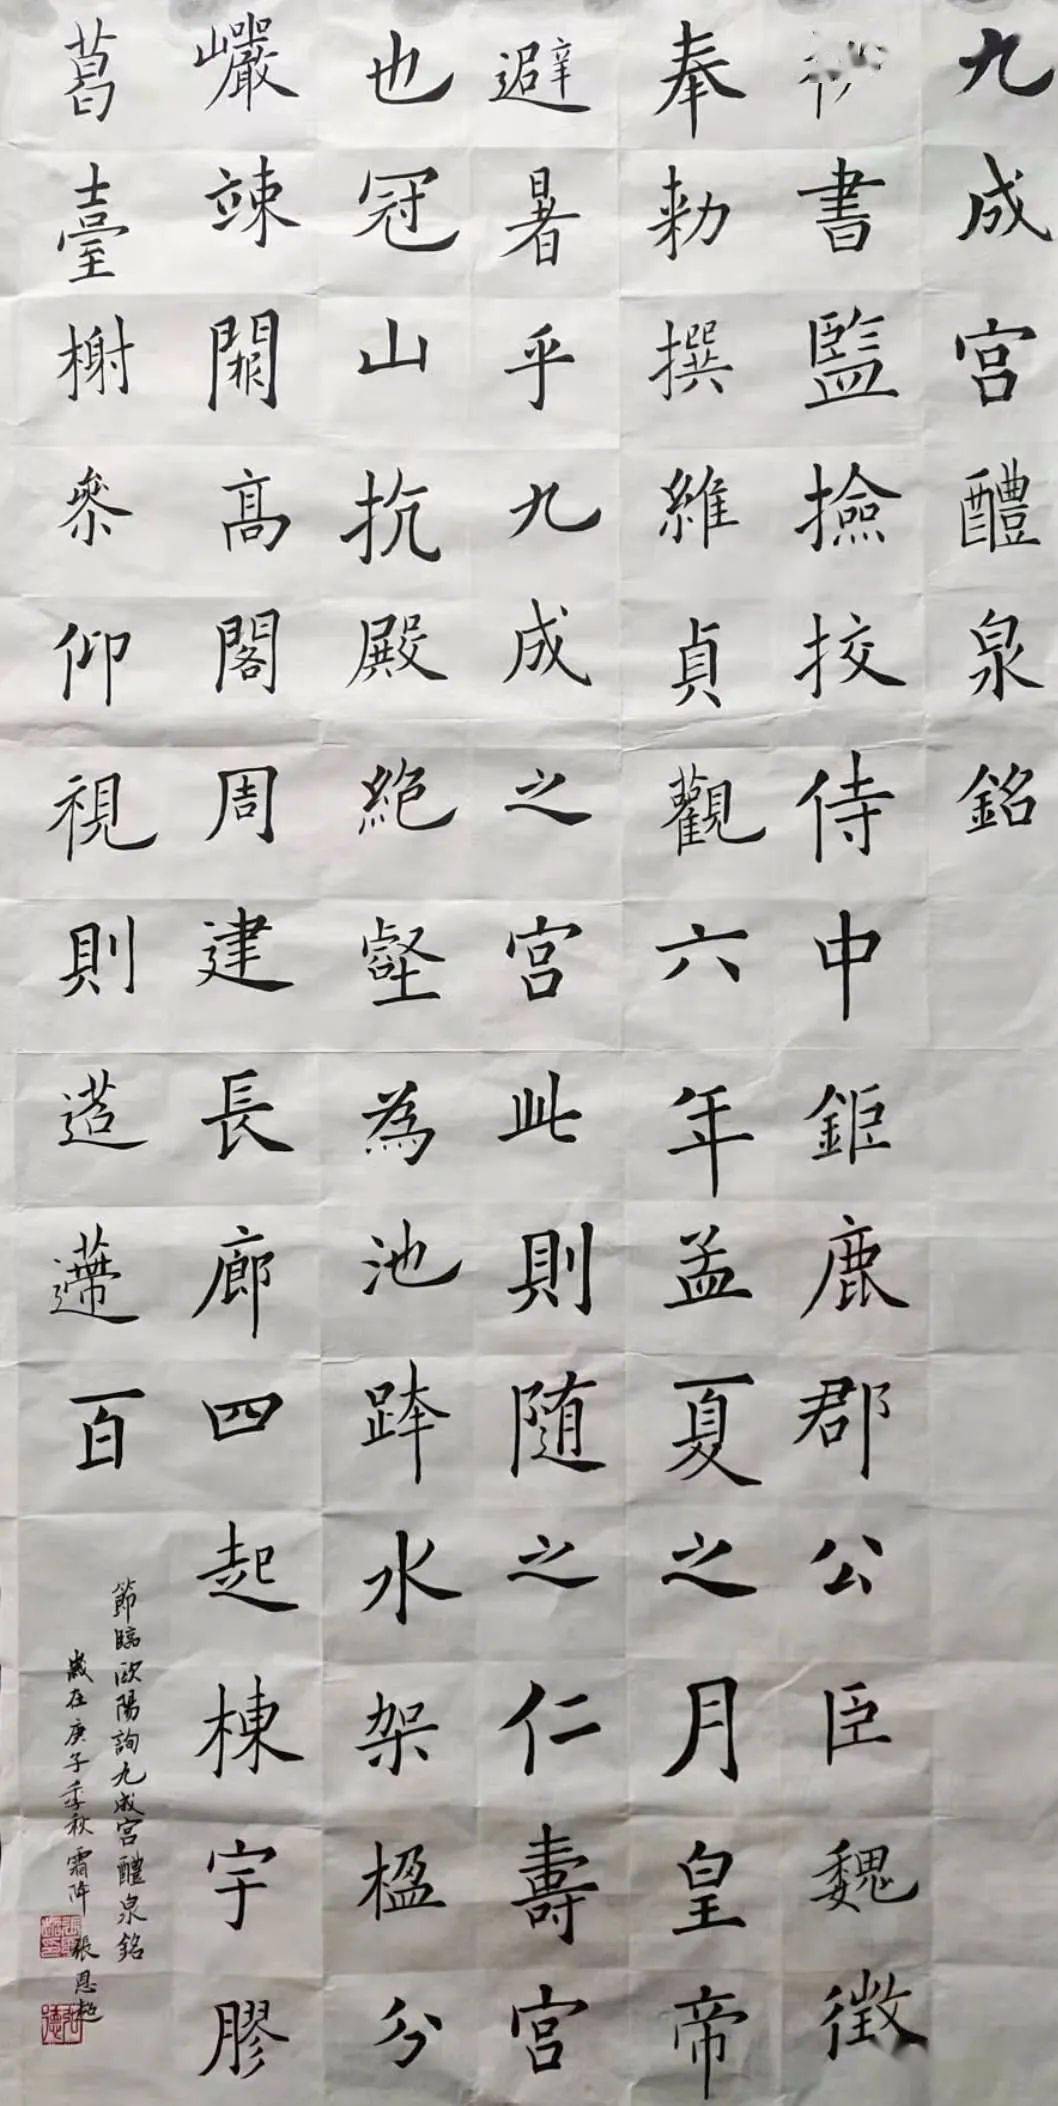 九成宮醴泉銘
書監撿挍侍中鉅鹿郡公臣魏徵
奉勑撰維貞觀六年孟夏之月皇帝
避暑乎九成之宮此則随之仁壽宮
也冠山抗殿絶壑為池跨水架楹分
巖竦闕髙閣周建長廊四起棟宇膠
葛臺榭參仰視則迢遰百
節臨歐陽詢九成宮醴泉銘
歲在庚子季秋霜降 張恩超